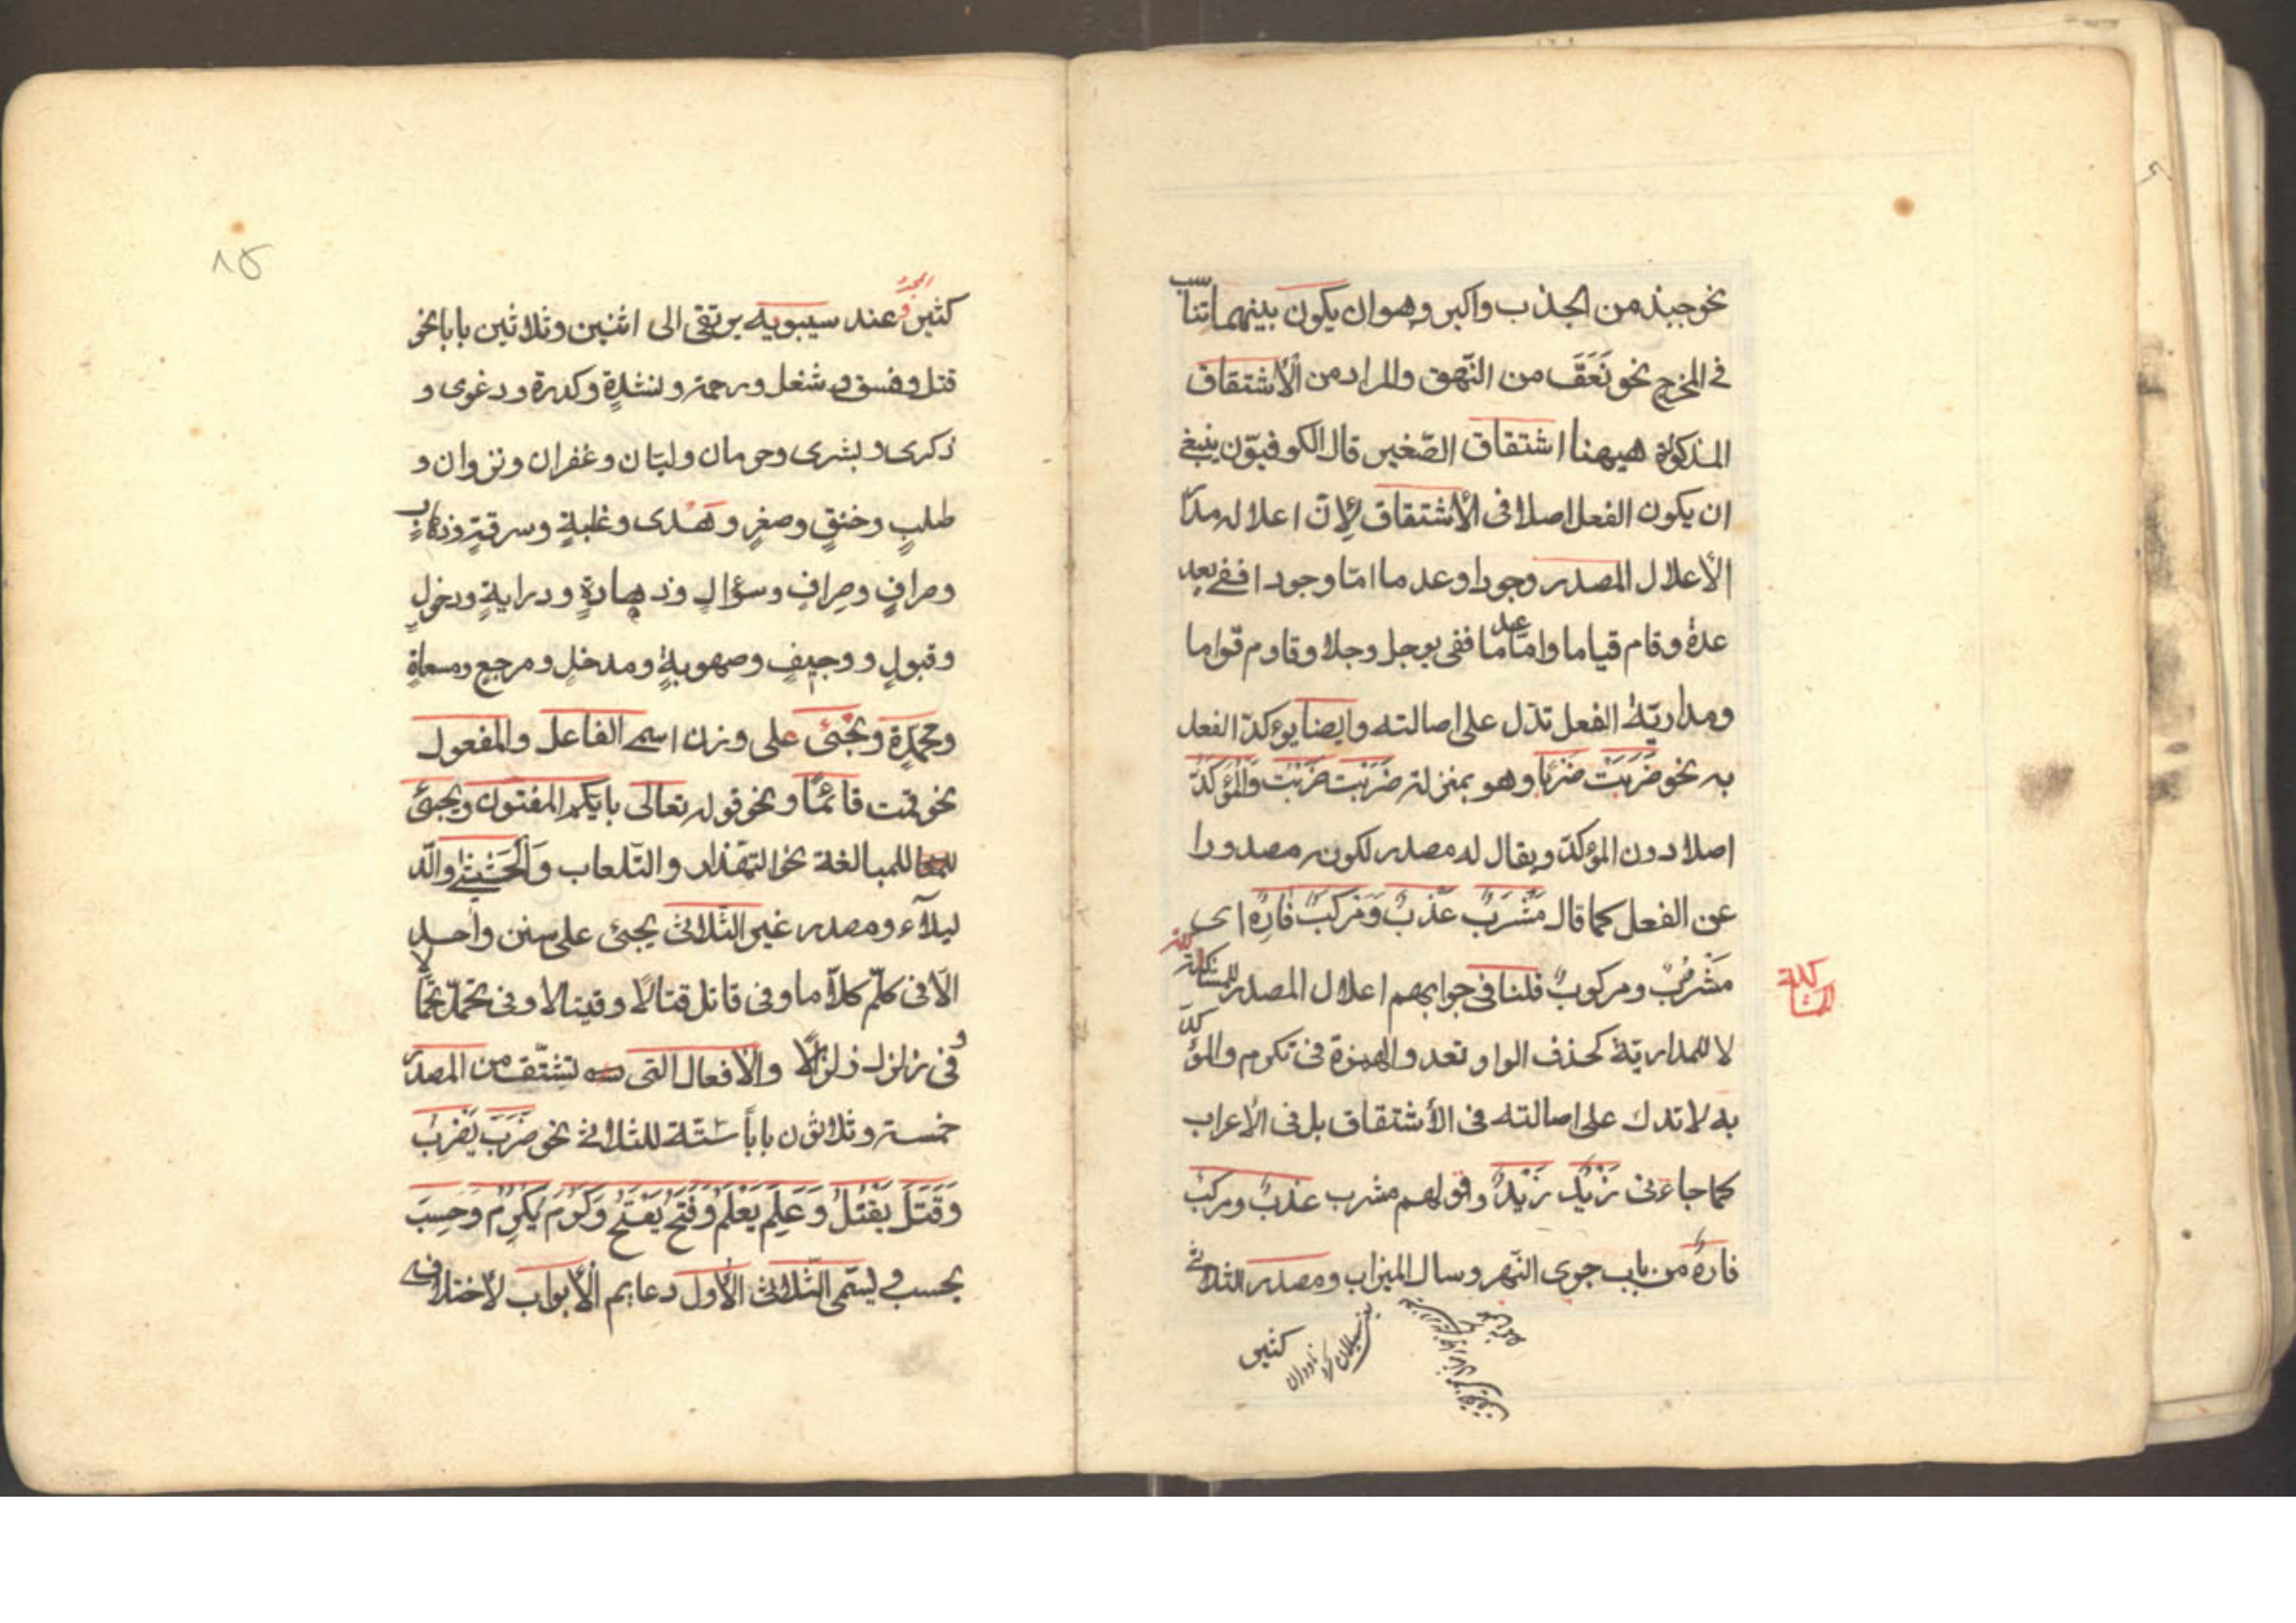 نحو جبذ من الجذب واكبر وهو ان يكون بينهما تناسب
فى المخرج نحو نَعَقَ من النّهق والمراد من الأشتقاق
المذكورة هيهنا اشتقاق الصّغير قال الكوفيّون ينبغى
ان يكون الفعل اصلا فى الأشتقاق لِأنّ اعلاله مدار
الأعلال المصدر وجودا وعدما امّا وجودا ففى يعد
عدة وقام قياما وامّا عدما ففى يوجل وجلا وقاوم قواما
ومداريّة الفعل تدّل على اصالته وايضا يؤكدّ الفعل
به نحو ضَرَبَتْ ضَرْبًا وهو بمنزلة ضَرَبَت ضَرَبْتْ وَالْمُؤَكَدُّ
اصلا دون المؤكدّ ويقال له مصدر لكونه مصدورا
عن الفعل كما قال مَشْرَبٌ عَذْبٌ وَمَركَبٌ فَارِهٌ اى
مَشْرُبٌ ومركوبٌ قلنا فى جوابهم اعلال المصدر للمشاكلة
المشاكلة
لا للمداريّة كحذف الواو تعد والهمزة فى تكرم والمؤكدّ
به لا تدل على اصالته فى الأشتقاق بل فى الأعراب
كما جاءَنى زَيْدٌ زَيْدٌ وقولهم مشرب عذبٌ ومركبٌ
فارهٌ من باب جرى النّهر وسال الميزاب ومصدر الثلاثى
كثير
١٥
كثير وعند سيبويه يرتقى الى اثنين وثلاثين بابا نحو
قتل وفسق وشغل ورحمة ونشدةٍ وكدرة ودعوى و
ذكرى وبشرى وحرمان وليّان وغفران ونزوان و
طلبٍ وخنقٍ وصغرٍ وهُدى وغلبةٍ وسرقةٍ وذهابٍ
وصرافٍ وصِرافٍ وسؤالٍ وزهادةٍ ودرايةٍ ودخولٍ
وقبولٍ ووجيفٍ وصهوبةٍ ومدخلٍ ومرجعٍ ومسعاةٍ
ومحمِدةٍ ويَجْئُ على وزن اسم الفاعل والمفعول
نحو قمت قائمًا ونحو قوله تعالى بايّكم المفتون ويجئ
للمبالغة نحو التهذار والتّلعاب وَالْحَثيثى والدّ
ليلآء ومصدر غير الثّلاثى يجئ على سنن واحد
الّا فى كلّم كلاّما وفى قاتل قتالًا وقيتالا وفى تحمّل تحمّالا
وفى زلزل زلزالًا والأفعال التى تشتّق من المصدر
خمسة وثلاثون باباً ستّة للثلاثى نحو ضَرَبَ يَضْرِبُ
وَقَتَلَ يَقْتُلُ وَعَلِمَ يَعْلَمُ وَفَتَحَ يَفْتَحُ وَكَرُمَ يَكْرُمُ وَحَسِبَ
يحسب ويسّمى الثّلاثى الأول دعايم الأبواب لأختلاف